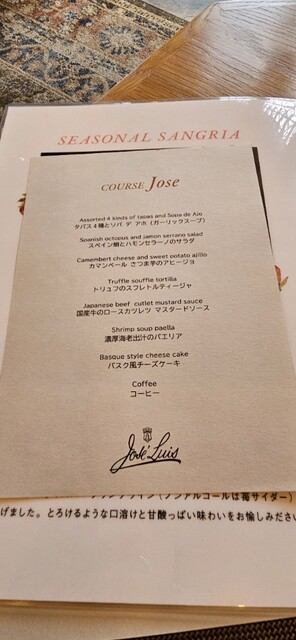 SEASONAL SANGRIA
COURSE Jose
Assorted 4 kinds of tapas and Sopa de Ajo
タパス４種とソパ デ アホ（ガーリックスープ）
Spanish octopus and jamon serrano salad
スペイン蛸とハモンセラーノのサラダ
Camembert cheese and sweet potato ajillo
カマンベール さつま芋のアヒージョ
Truffle souffle tortilla
トリュフのスフレトルティージャ
Japanese beef cutlet mustard sauce
国産牛のロースカツレツ マスタードソース
Shrimp soup paella
濃厚海老出汁のパエリア
Basque style cheese cake
バスク風チーズケーキ
Coffee
コーヒー
José Luis
（ノンアルコールは苺サイダー）
げました。とろけるような口溶けと甘酸っぱい味わいをお愉しみださい